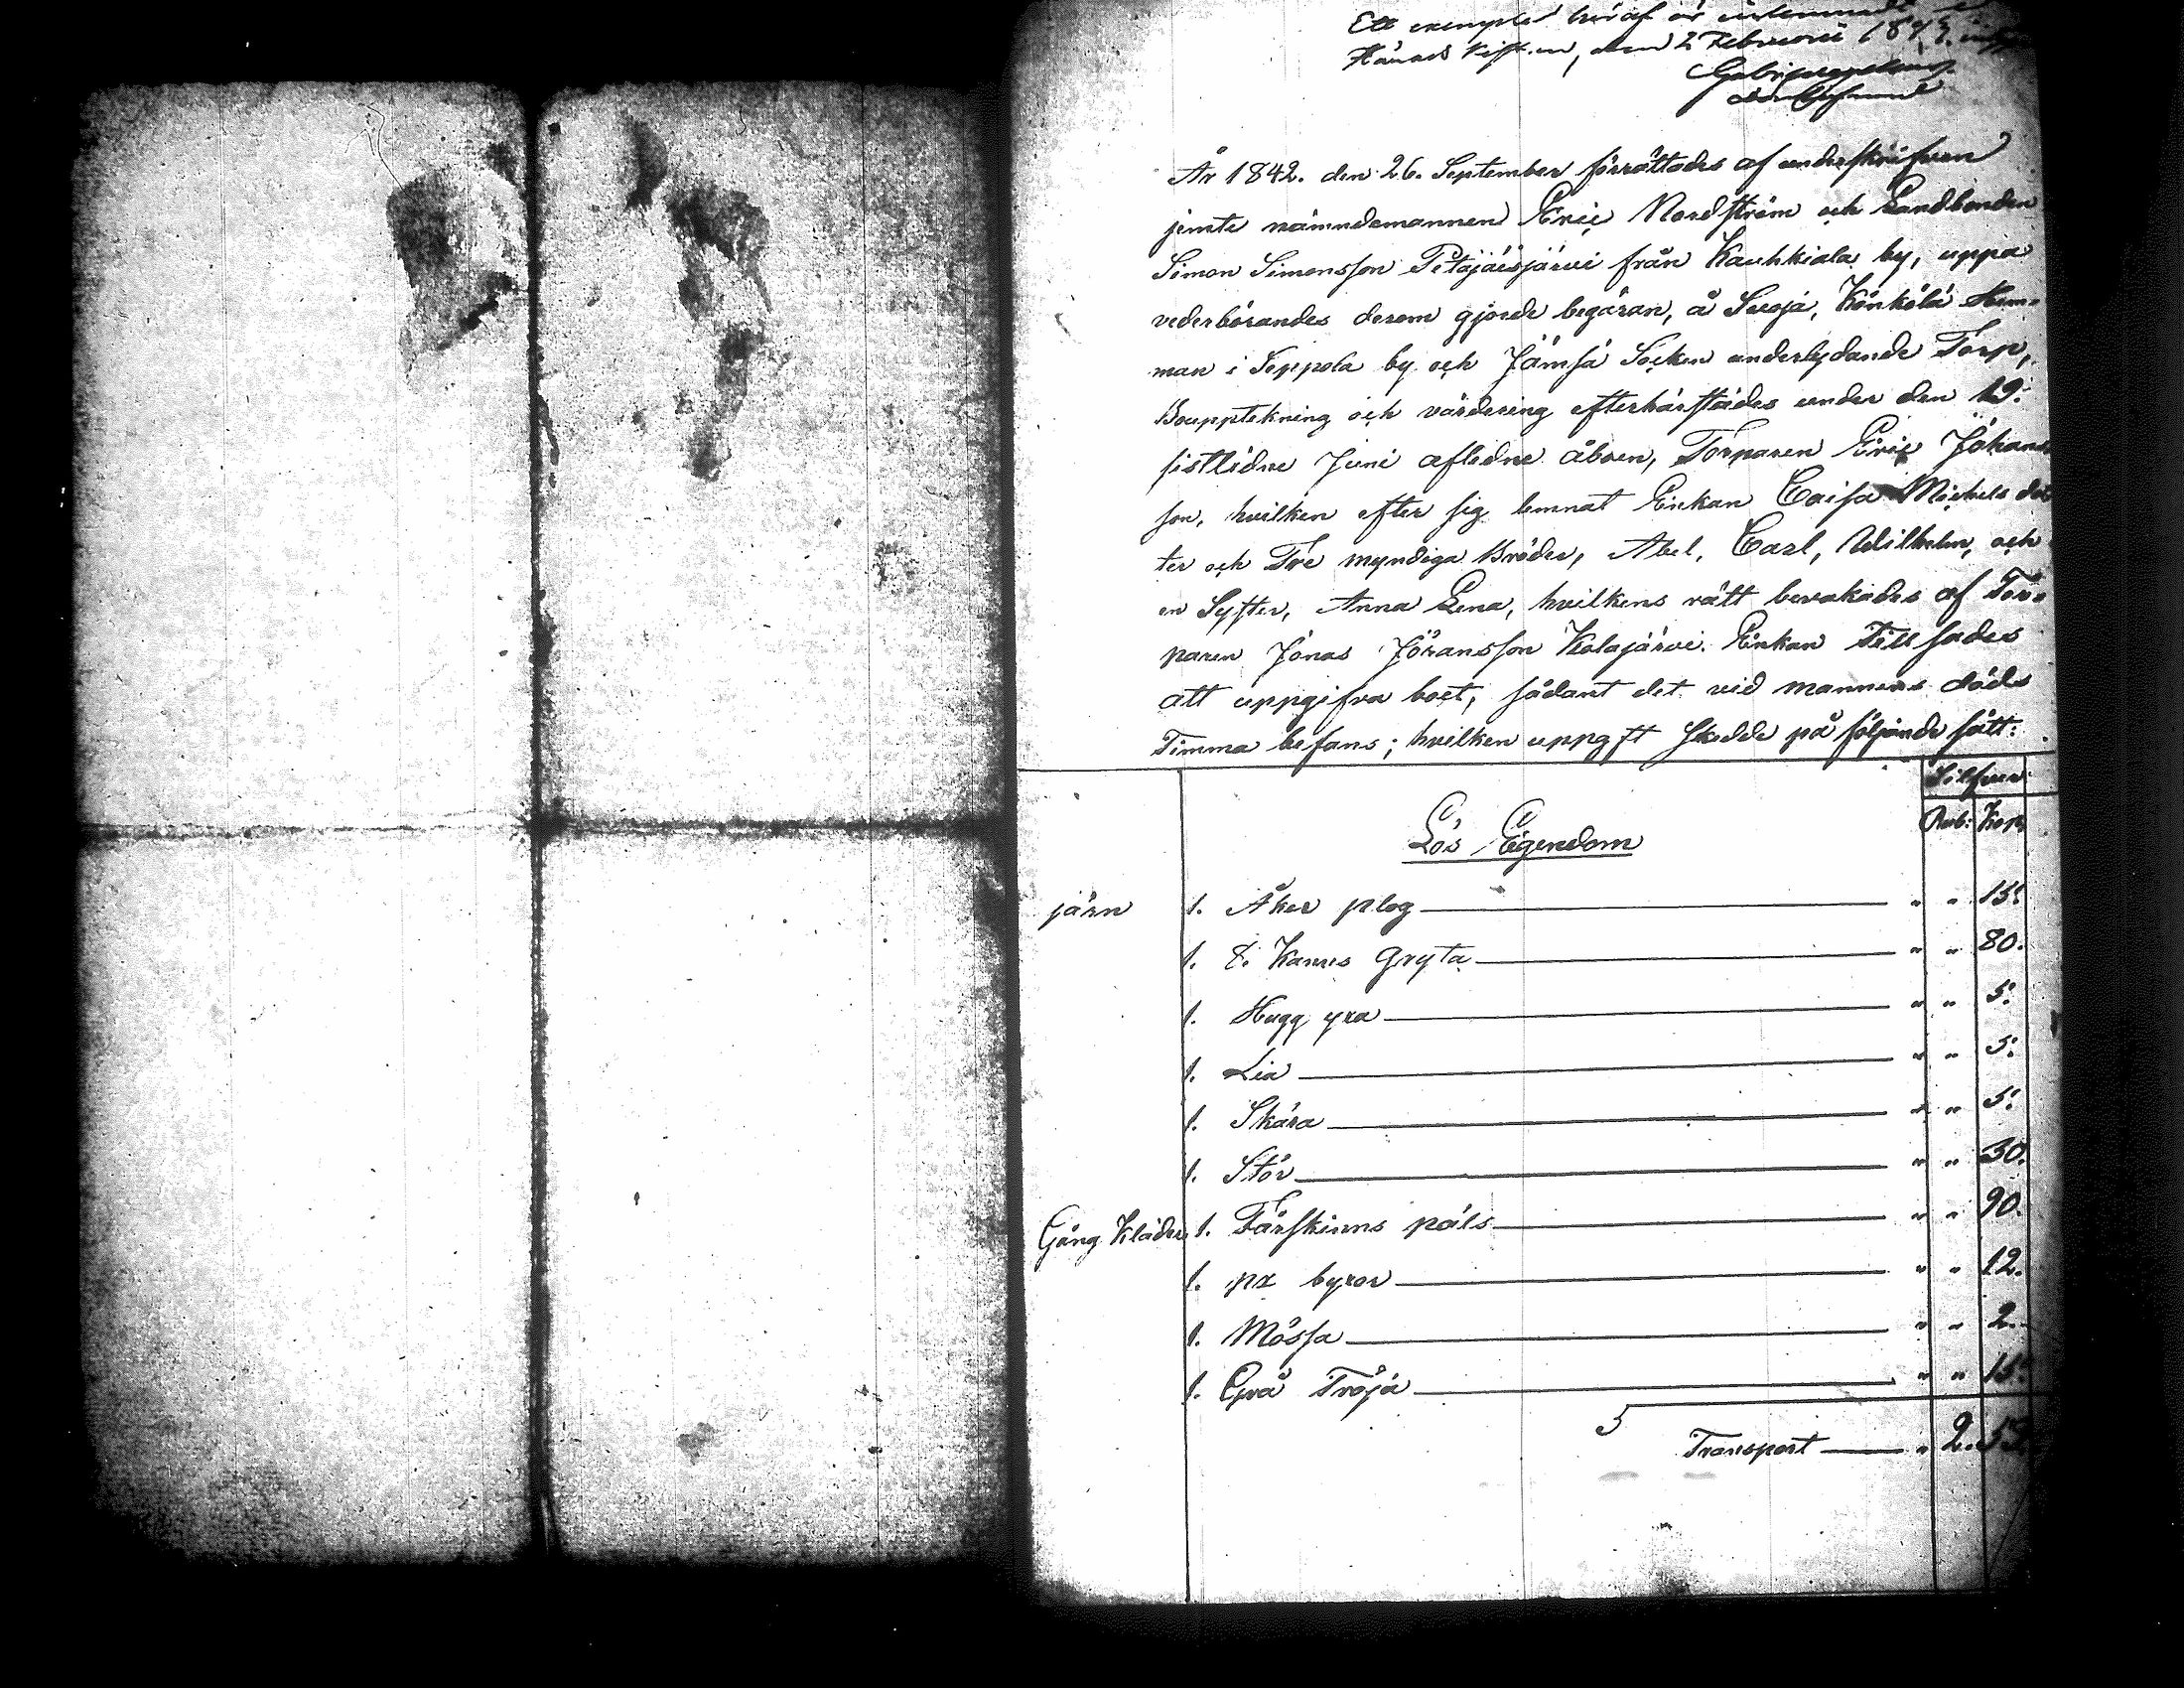 Ett exemplar häraf är inlemnadt
Härads Rätten, den 2 Februari 1843.
År 1842. den 26. September förrättades af underskrifven
jemte nämndemannen Eric Nordström och Landbonden
Simon Simonsson Petäjäisjärvi från Kauhkiala by, uppå
vederbörandes derom gjorde begäran, å Seoja, Könkölä Hem-
man i Seppola by och Jämsä Socken underlydande Torp,
Bouppteckning och värdering efterhärstädes under den 19:
sistlidne Juni aflidne åboen, Torparen Eric Johans
son, hvilken efter sig lemnat Enkan Caisa Michels dot
ter och Tre myndiga Bröder, Abel, Carl, Wilhelm, och
en Syster, Anna Lena, hvilkens rätt bevakades af Tor-
paren Jonas Jöransson Kolajärvi. Enkan Tillsades
att uppgifva boet, sådant det vid mannens döds
Timma befans; hvilken uppgift skedde på följande sätt:
Silfver
Rub: Kop
Lös Egendom
järn 1. Åker plog " " 15:
1. 8. Kanns Gryta " " 80.
1. Hugg yxa " " 5:
1. Lia " " 5:
1. Skära " " 5:
1. Stör " " 30.
Gång Kläder 1. Fårskinns päls " " 90.
1. par byxor " " 12.
1. Mössa " " 2.
1. Grå Tröja " " 15:
Transport " 2. 55